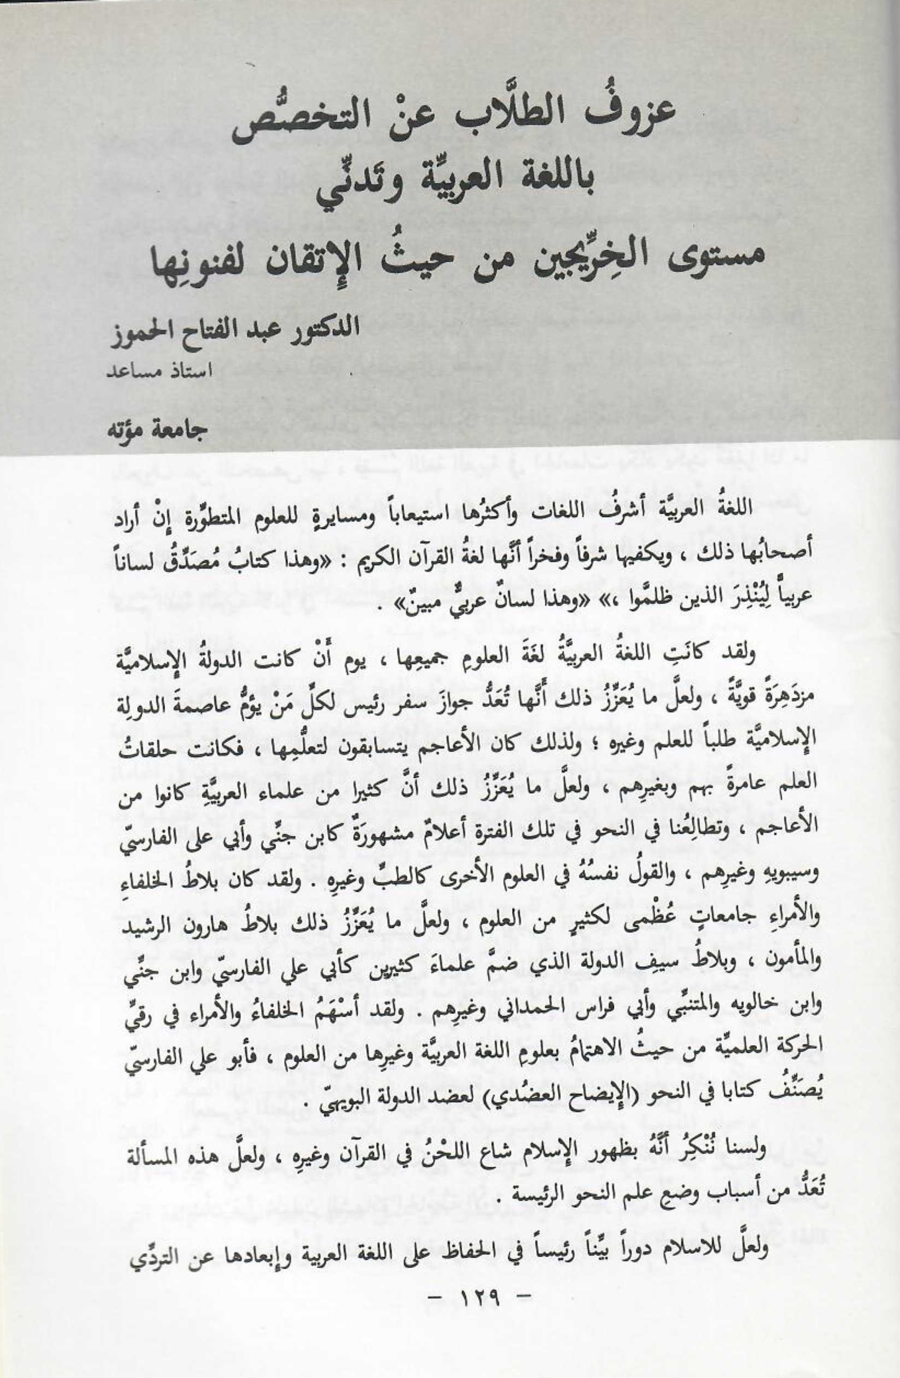 عزوفُ الطلَّاب عنْ التخصصُّص
باللغة العربيِّة وتَدنِّي
مستوى الخِرِّيجين من حيثُ الإتقان لفنونِها
الدكتور عبد الفتاح الحموز
استاذ مساعد
جامعة مؤته
اللغةُ العربيَّة أشرفُ اللغات وأكثرُها استيعاباً ومسايرةٍ للعلوم المتطوِّرة إنْ أراد
أصحابُها ذلك ، ويكفيها شرفاً وفخراً أنَّها لغةُ القرآن الكريم : «وهذا كتابُ مُصَدِّقُ لساناً
عربياً لِيُنْذِرَ الذين ظلمَوا ،» «وهذا لسانٌ عربيٌّ مبينٌ» .
ولقد كانَتِ اللغةُ العربيَّةُ لغَةَ العلومِ جميعِها ، يوم أَنْ كانت الدولةُ الإسلاميَّة
مزدَهِرَةً قويَّةً ، ولعلَّ ما يُعَزِّزُ ذلك أَنَّها تُعَدُّ جوازَ سفر رئيس لكلِّ مَنْ يؤمُّ عاصمةَ الدولِة
الإسلاميَّة طلباً للعلم وغيره ؛ ولذلك كان الأعاجم يتسابقون لتعلُّمِها ، فكانت حلقاتُ
العلم عامرةً بهم وبغيرِهم ، ولعلَّ ما يُعَزِّزُ ذلك أنَّ كثيرا من علماء العربيَّةِ كانوا من
الأعاجم ، وتطالِعُنا في النحو في تلك الفترة أعلامٌ مشهورَةٌ كابن جنِّي وأبي على الفارسيّ
وسيبويهِ وغيرِهم ، والقولُ نفسُهُ في العلوم الأخرى كالطبِّ وغيرِه . ولقد كان بلاطُ الخلفاءِ
والأمراءِ جامعاتٍ عُظْمى لكثيرٍ من العلوم ، ولعلَّ ما يُعَزِّزُ ذلك بلاطُ هارون الرشيد
والمأمون ، وبلاطُ سيفِ الدولة الذي ضمَّ علماءَ كثيرين كأبي علي الفارسيّ وابن جنِّي
وابن خالويه والمتنبِّي وأبي فراس الحمداني وغيرِهم . ولقد أسْهَمُ الخلفاءُ والأمراء في رقيِّ
الحركة العلميِّة من حيثُ الاهتمامُ بعلومِ اللغة العربيَّة وغيرِها من العلوم ، فأبو علي الفارسيّ
يُصَنِّفُ كتابا في النحو (الإيضاح العضُدي) لعضد الدولة البويهيّ .
ولسنا نُنْكِرُ أنَّهُ بظهور الإسلام شاع اللحْنُ في القرآن وغيرِه ، ولعلَّ هذه المسألة
تُعَدُّ من أسباب وضعِ علم النحو الرئيسة .
ولعلَّ للاسلام دوراً بيِّناً رئيساً في الحفاظ على اللغة العربية وإبعادها عن التردِّي
– ١٢٩ –